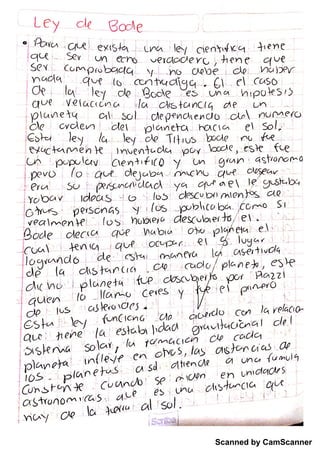 Ley de Bode
• Para que exista una ley cientifica tiene
que ser un echo verdadero, tiene que
ser comprobada y no debe de haber
nada que lo contradiga. El el caso
de la ley de Bode es una hipotesis
que relaciona la distancia de un
planeta al sol dependiendo del numero
de orden del planeta hacia el Sol.
Esta ley la ley de Titius bode no fue
exactamente inventada por bode, este fue
un popular cientifico y un gran astronomo
pero lo que dejaba mucho que desear
era su personalidad ya que a el le gustaba
robar ideas o los descubrimientos de
otras personas y los publicaba como si
realmente los hubiera descubierto el.
Bode decia que habia otro planeta el
cual tenia que ocupar el 5 lugar
logrando de esta manera la asertividad
de la distancia de cada planeta, este
dicho planeta fue descubierto por Piazzi
quien lo llamo ceres y fue el primero
de los asteroides.
Esta ley funciona de acuerdo con la relacion
que tiene la estabilidad gravitacional del
Sistema solar, la formacion de cada
planeta infleye en otros, las distancias de
los planetas a sol atiende a una formula
constante cuando se miden en unidades
astronomicas que es una distancia que
hay de la tierra al sol.
Scanned by CamScanner